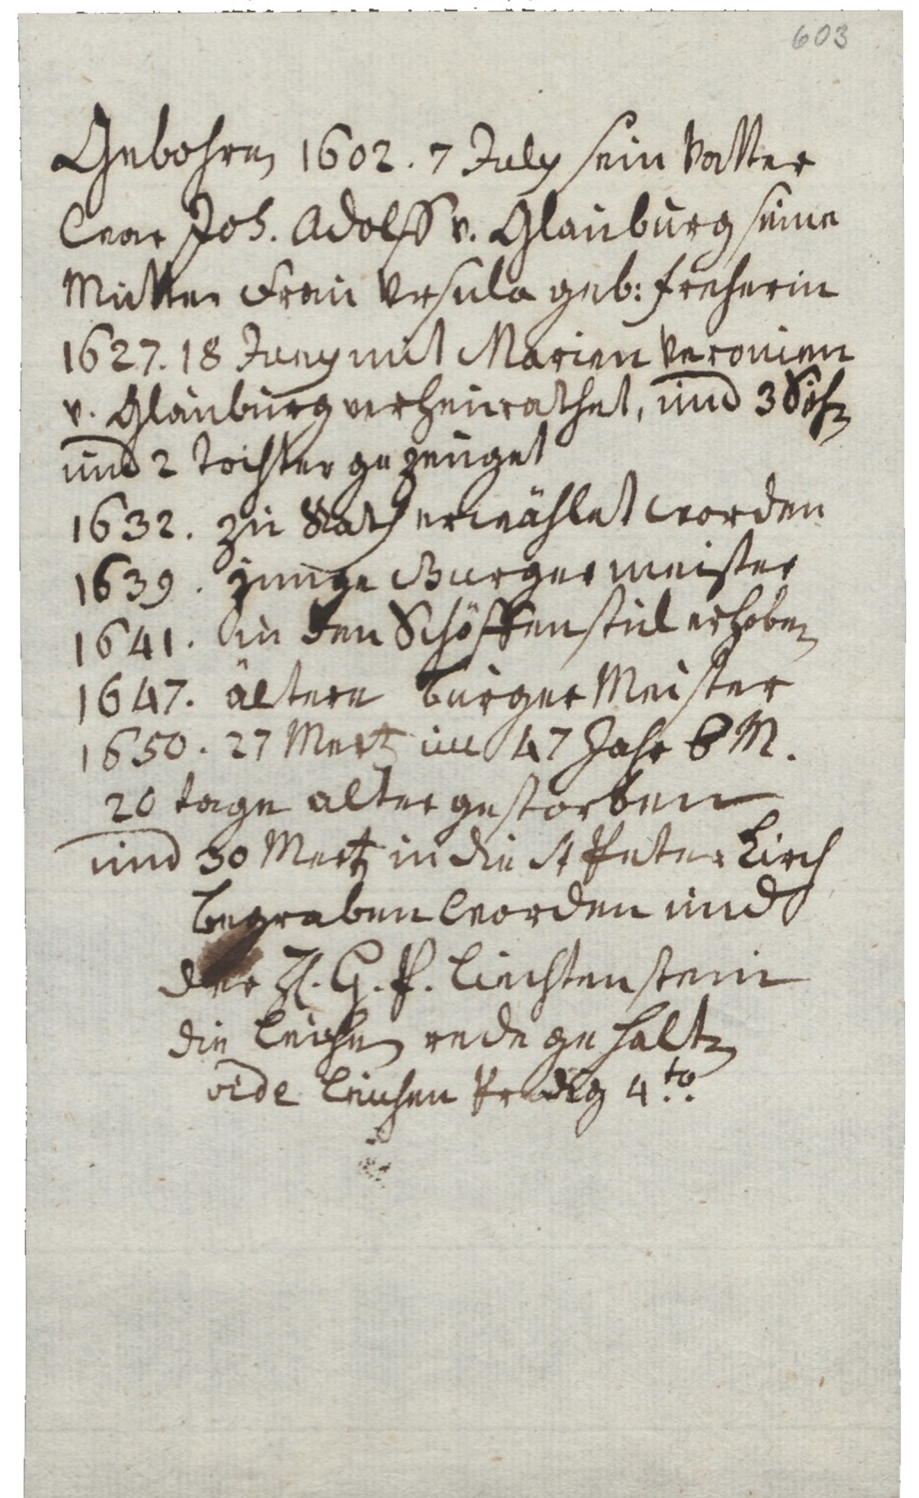 603
Gebohren 1602. 7 July sein Vatter
war Joh. Adolff v. Glauburg seine
Mutter Frau Ursula geb: Freherin
1627. 18 Juny mit Marien Veronien
v. Glauburg verheurathet, und 3 Söhn
und 2 Tochter gezeuget
1632. zu Rath erwählet worden
1639. junge Burgermeister
1641. in den Schöffenstul erhoben
1647. ältere burger Meister
1650. 27 Mertz im 47 Jahr 8 M.
20 tage alter gestorben
und 30 Mertz in die St Peter Kirch
begraben worden und
der H. G. P. Liechtenstein
die leichen rede gehalten
vide leichen Predig 4.to